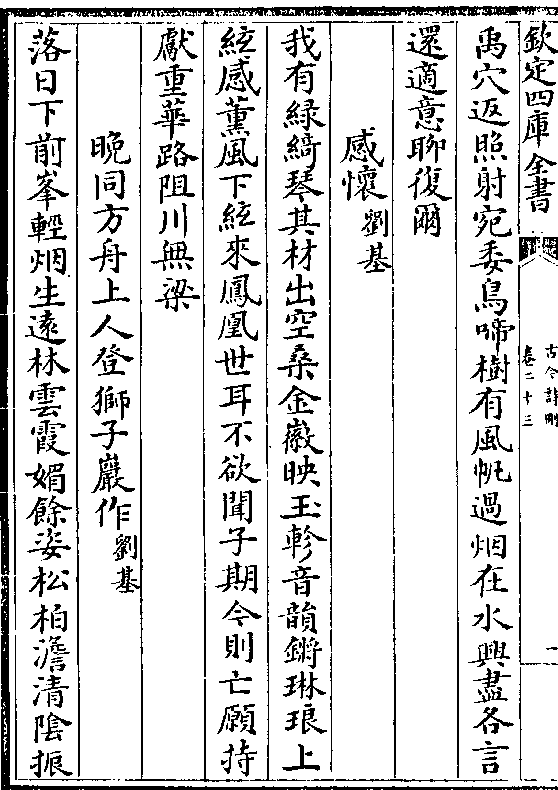 欽定四庫全書
古今詩刪
卷二十三
一
禹穴返照射宛委鳥啼樹有風帆過烟在水興盡各言
還適意聊復爾
感懷劉基
我有緑綺琴其材出空桑金徽映玉軫音韻鏘琳琅上
絃感薰風下絃來鳳凰世耳不欲聞子期今則亡願持
獻重華路阻川無梁
晚同方舟上人登獅子巖作劉基
落日下前峯輕烟生遠林雲霞媚餘姿松柏澹清陰振